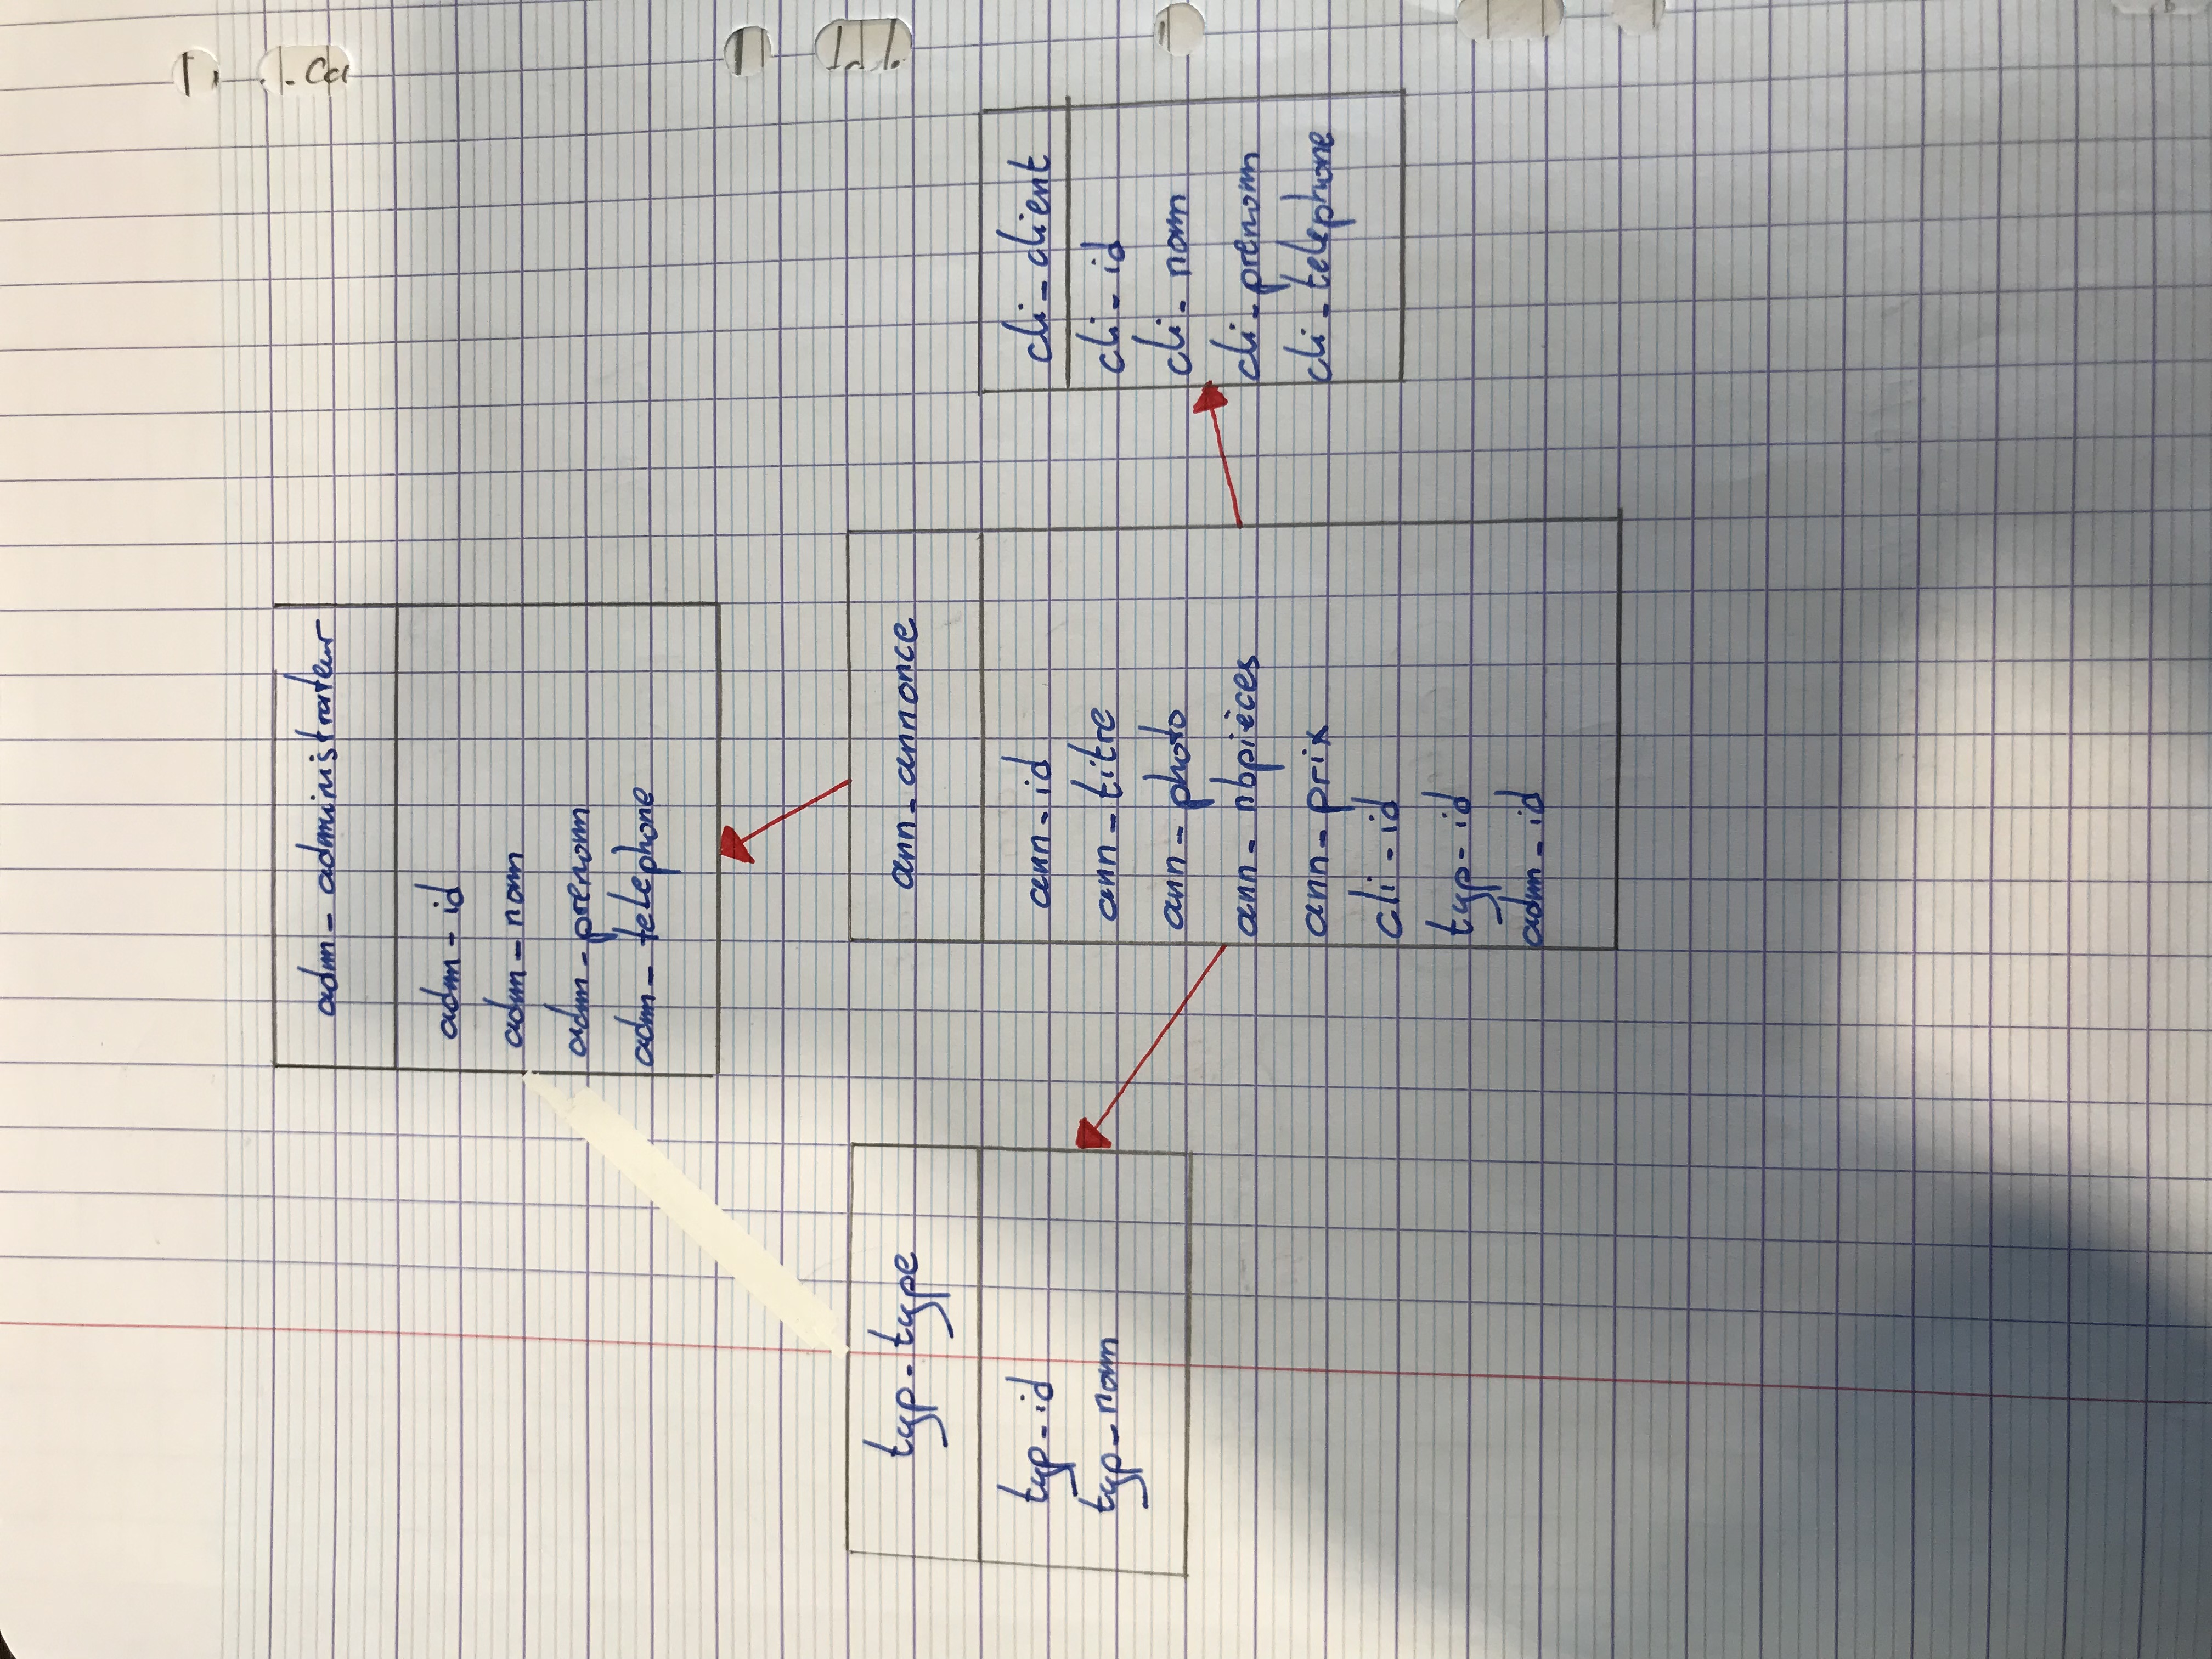 adm_administrateur
adm_id
adm_nom
adm_prenom
adm_telephone
typ_type
typ_id
typ_nom
ann_annonce
ann_id
ann_titre
ann_photo
ann_nbpièces
ann_prix
cli_id
typ_id
adm_id
cli_client
cli_id
cli_nom
cli_prenom
cli_telephone